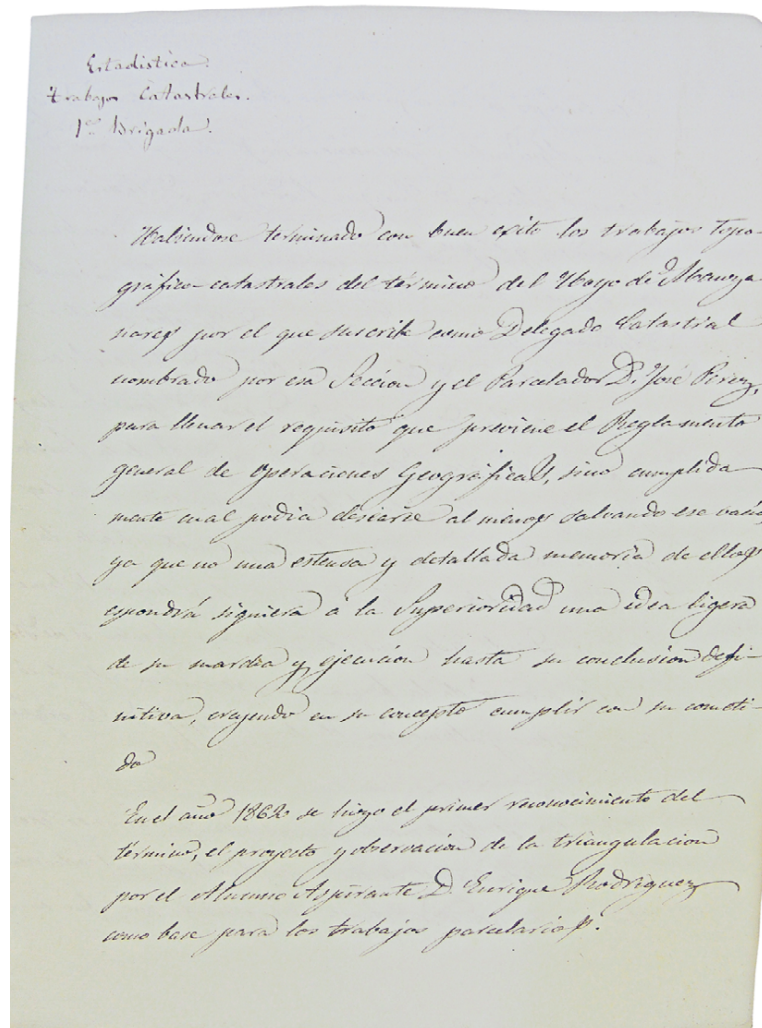 Estadistica.
trabajos Catastrales.
1ª Brigada.
Habiendose terminado con buen exito los trabajos topo-
gráfico-catastrales del término del Hoyo de Manza-
nares por el que suscribe como Delegado Catastral
nombrado por esa Seccion y el Parcelador D. José Perez,
para llenar el requisito que previene el Reglamento
general de operaciones Geográficas, sino cumplida-
mente cual podia desearse al menos salvando ese vacio,
ya que no una estensa y detallada memoria de ellos
espondrá siquiera a la Superioridad una idea ligera
de su marcha y ejecucion hasta su conclusion defi-
nitiva, creyendo en su concepto cumplir con su cometi-
do
En el año 1862 se hizo el primer reconocimiento del
término, el proyecto y observacion de la triangulacion
por el Alumno Aspirante D. Enrique Rodriguez
como base para los trabajos parcelarios.